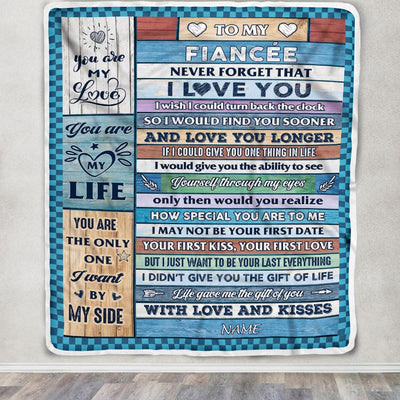 you are
MY
Love
You are
MY
LIFE
YOU ARE
THE ONLY
ONE
I want
BY
MY SIDE
TO MY
FIANCÉE
NEVER FORGET THAT
I LOVE YOU
I wish I could turn back the clock
SO I WOULD FIND YOU SOONER
AND LOVE YOU LONGER
IF I COULD GIVE YOU ONE THING IN LIFE
I would give you the ability to see
Yourself through my eyes
only then would you realize
HOW SPECIAL YOU ARE TO ME
I MAY NOT BE YOUR FIRST DATE
YOUR FIRST KISS, YOUR FIRST LOVE
BUT I JUST WANT TO BE YOUR LAST EVERYTHING
I DIDN'T GIVE YOU THE GIFT OF LIFE
Life gave me the gift of you
WITH LOVE AND KISSES
NAME